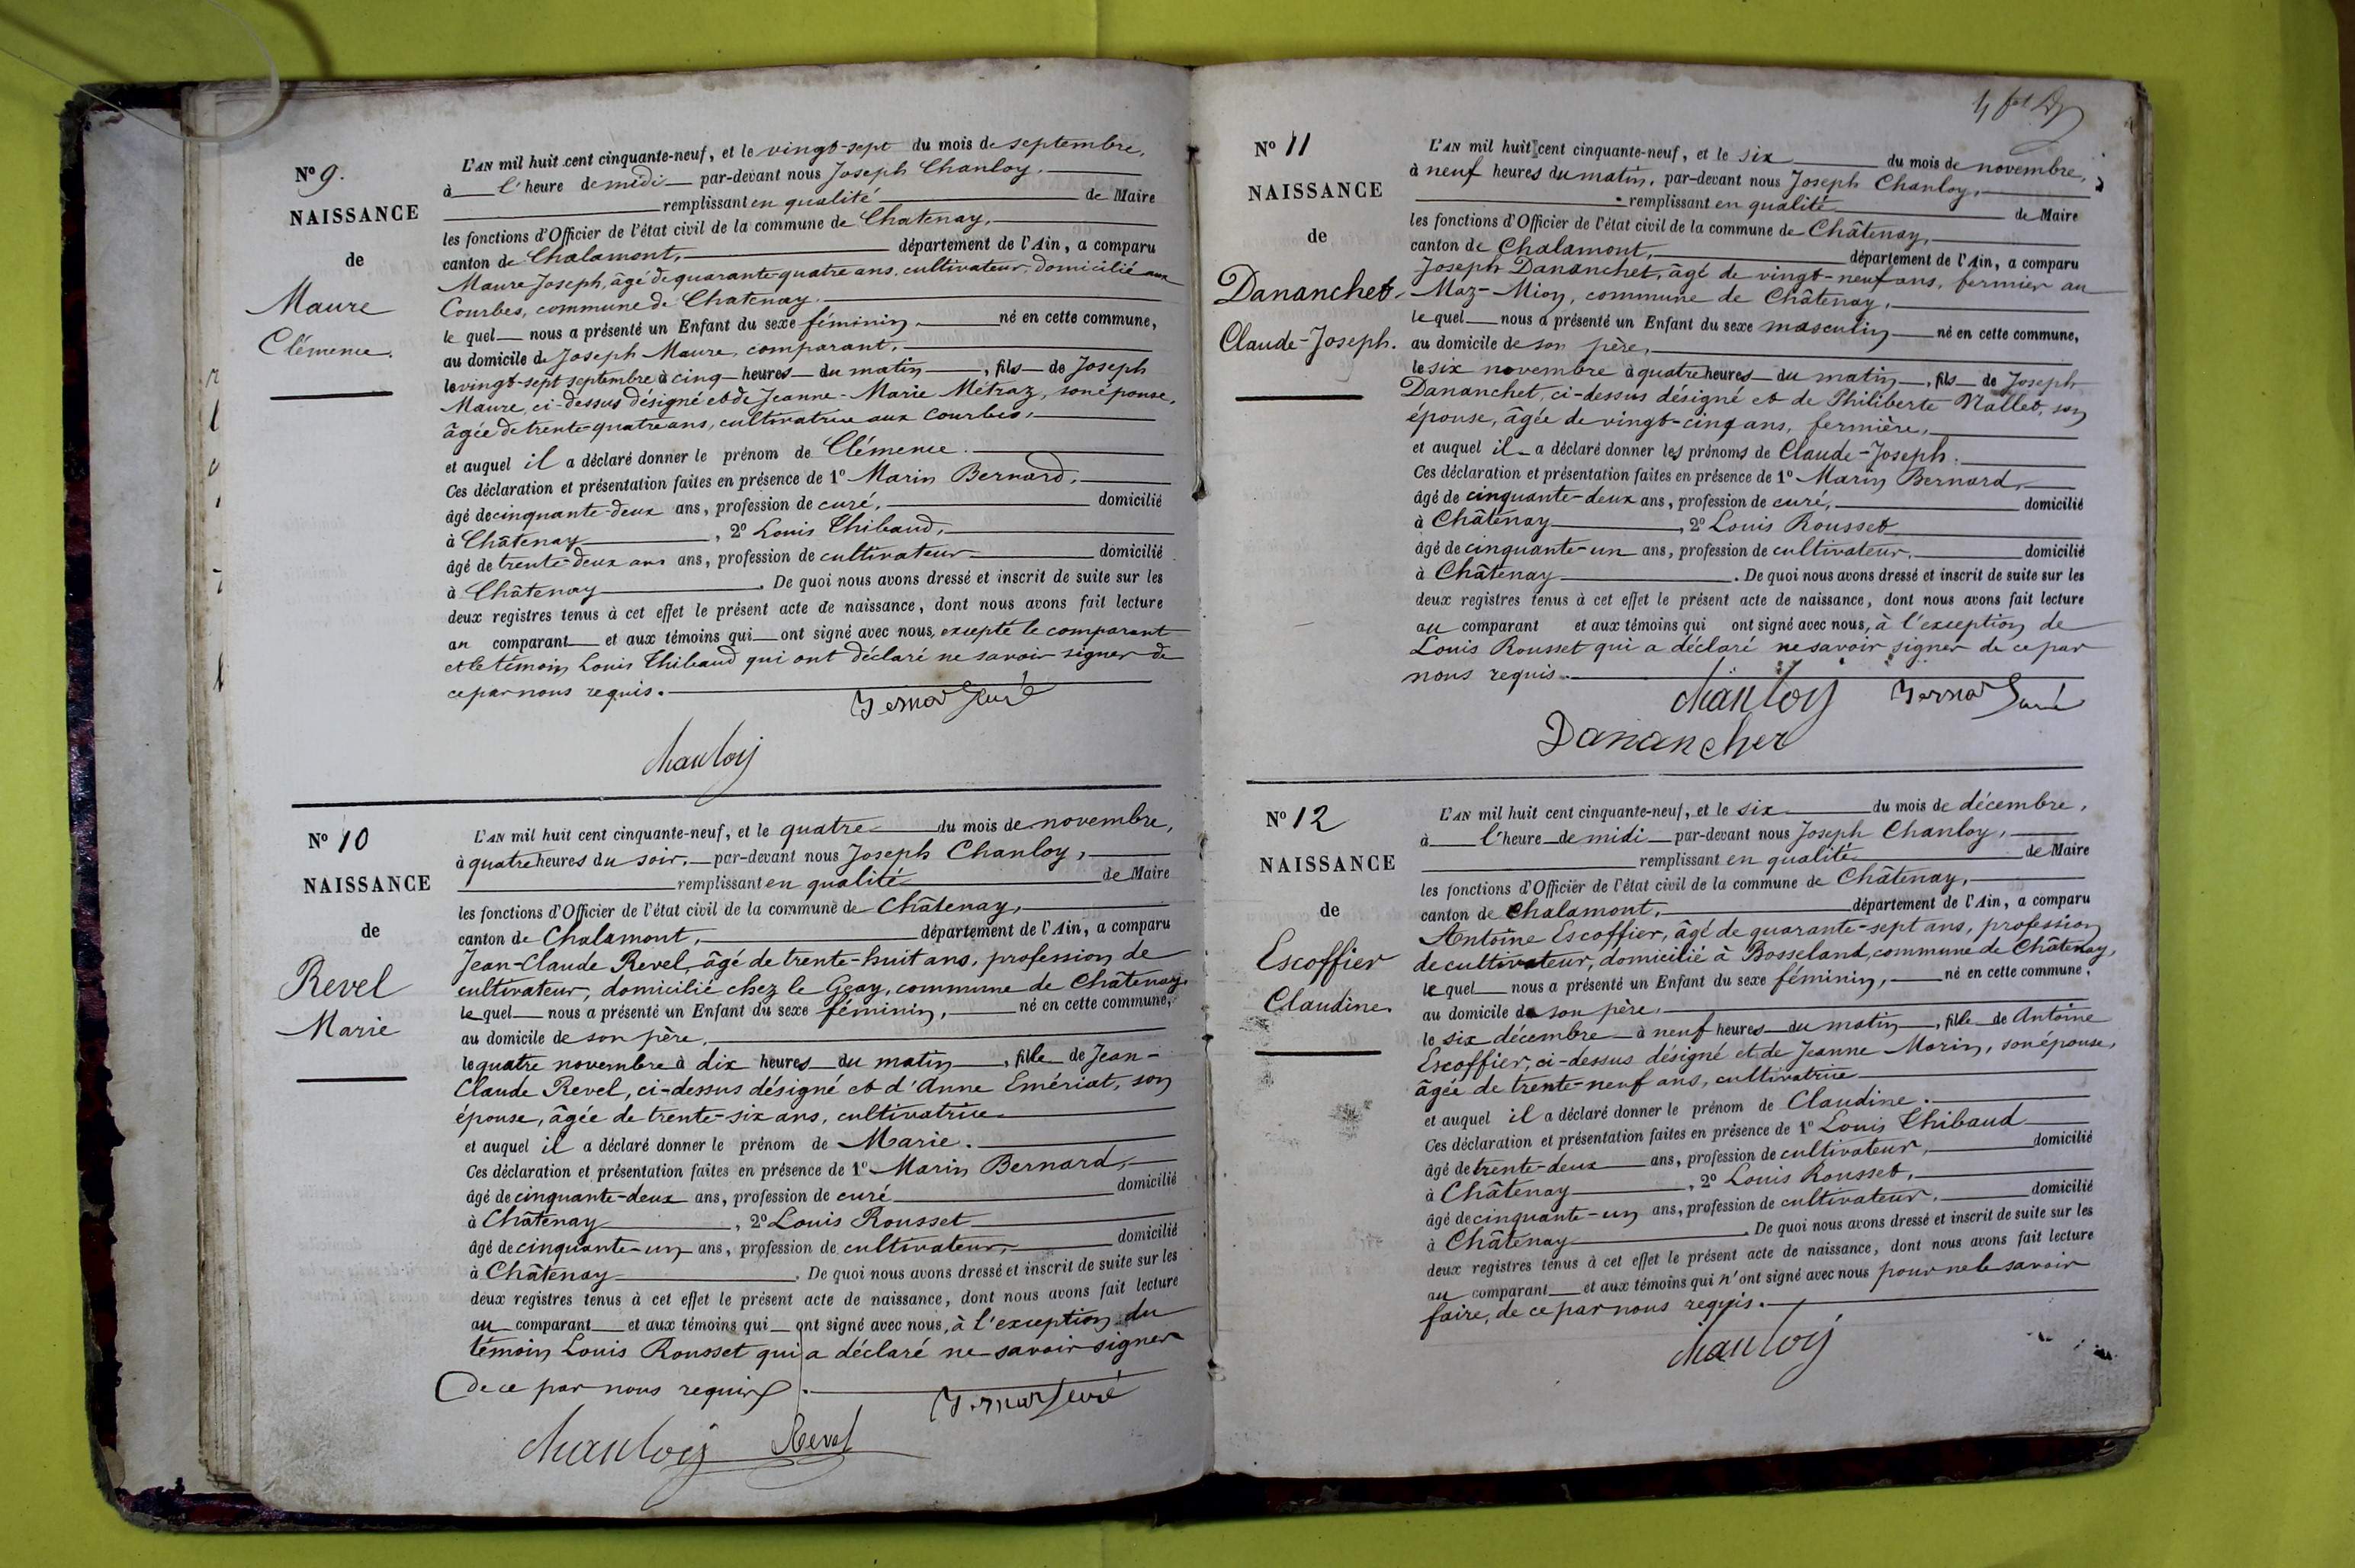 Nº 9.
NAISSANCE
de
Maure
Clémence.
L'AN mil huit cent cinquante-neuf, et le vingt-sept du mois de septembre,
à l'heure de midi par-devant nous Joseph Chanloy,
remplissant en qualité de Maire
les fonctions d'Officier de l'état civil de la commune de Chatenay,
canton de Chalamont, département de l'Ain, a comparu
Maure Joseph, âgé de quarante-quatre ans, cultivateur, domicilié aux
Courbes, commune de Chatenay.
le quel nous a présenté un Enfant du sexe féminin, né en cette commune,
au domicile de Joseph Maure, comparant,
le vingt-sept septembre à cinq heures du matin, fils de Joseph
Maure, ci-dessus désigné et de Jeanne-Marie Métraz, son épouse,
âgée de trente-quatre ans, cultivatrice aux Courbes,
et auquel il a déclaré donner le prénom de Clémence.
Ces déclaration et présentation faites en présence de 1º Marin Bernard,
âgé de cinquante-deux ans, profession de curé, domicilié
à Châtenay, 2º Louis Thibaud,
âgé de trente-deux ans ans, profession de cultivateur domicilié
à Châtenay. De quoi nous avons dressé et inscrit de suite sur les
deux registres tenus à cet effet le présent acte de naissance, dont nous avons fait lecture
au comparant et aux témoins qui ont signé avec nous, excepté le comparant
et le témoin Louis Thibaud qui ont déclaré ne savoir signer de
ce par nous requis.
Bernard curé
Chanloy
Nº 10
NAISSANCE
de
Revel
Marie
L'AN mil huit cent cinquante-neuf, et le quatre du mois de novembre,
à quatre heures du soir, par-devant nous Joseph Chanloy,
remplissant en qualité de Maire
les fonctions d'Officier de l'état civil de la commune de Châtenay,
canton de Chalamont, département de l'Ain, a comparu
Jean-Claude Revel, âgé de trente-huit ans, profession de
cultivateur, domicilié chez le Geay, commune de Châtenay,
le quel nous a présenté un Enfant du sexe féminin, né en cette commune,
au domicile de son père,
le quatre novembre à dix heures du matin, fille de Jean-
Claude Revel, ci-dessus désigné et d'Anne Emériat, son
épouse, âgée de trente-six ans, cultivatrice
et auquel il a déclaré donner le prénom de Marie.
Ces déclaration et présentation faites en présence de 1º Marin Bernard,
âgé de cinquante-deux ans, profession de curé domicilié
à Châtenay, 2º Louis Rousset
âgé de cinquante-un ans, profession de cultivateur, domicilié
à Châtenay. De quoi nous avons dressé et inscrit de suite sur les
deux registres tenus à cet effet le présent acte de naissance, dont nous avons fait lecture
au comparant et aux témoins qui ont signé avec nous, à l'exception du
témoin Louis Rousset qui a déclaré ne savoir signer
de ce par nous requis.
Bernard curé
Chanloy Revel
Nº 11
NAISSANCE
de
Dananchet
Claude-Joseph.
L'AN mil huit cent cinquante-neuf, et le six du mois de novembre,
à neuf heures du matin, par-devant nous Joseph Chanloy,
remplissant en qualité de Maire
les fonctions d'Officier de l'état civil de la commune de Châtenay,
canton de Chalamont, département de l'Ain, a comparu
Joseph Dananchet, âgé de vingt-neuf ans, fermier au
Maz-Mion, commune de Châtenay,
le quel nous a présenté un Enfant du sexe masculin né en cette commune,
au domicile de son père,
le six novembre à quatre heures du matin, fils de Joseph
Dananchet, ci-dessus désigné et de Philiberte Nallet, son
épouse, âgée de vingt-cinq ans, fermière,
et auquel il a déclaré donner les prénoms de Claude-Joseph.
Ces déclaration et présentation faites en présence de 1º Marin Bernard,
âgé de cinquante-deux ans, profession de curé, domicilié
à Châtenay, 2º Louis Rousset
âgé de cinquante-un ans, profession de cultivateur, domicilié
à Châtenay. De quoi nous avons dressé et inscrit de suite sur les
deux registres tenus à cet effet le présent acte de naissance, dont nous avons fait lecture
au comparant et aux témoins qui ont signé avec nous, à l'exception de
Louis Rousset qui a déclaré ne savoir signer de ce par
nous requis.
Chanloy Bernard curé
Dananchet
Nº 12
NAISSANCE
de
Escoffier
Claudine.
L'AN mil huit cent cinquante-neuf, et le six du mois de décembre,
à l'heure de midi par-devant nous Joseph Chanloy,
remplissant en qualité de Maire
les fonctions d'Officier de l'état civil de la commune de Châtenay,
canton de Chalamont, département de l'Ain, a comparu
Antoine Escoffier, âgé de quarante-sept ans, profession
de cultivateur, domicilié à Bosseland, commune de Châtenay,
le quel nous a présenté un Enfant du sexe féminin, né en cette commune,
au domicile de son père,
le six décembre à neuf heures du matin, fille de Antoine
Escoffier, ci-dessus désigné et de Jeanne Morin, son épouse,
âgée de trente-neuf ans, cultivatrice
et auquel il a déclaré donner le prénom de Claudine.
Ces déclaration et présentation faites en présence de 1º Louis Thibaud
âgé de trente-deux ans, profession de cultivateur, domicilié
à Châtenay, 2º Louis Rousset,
âgé de cinquante-un ans, profession de cultivateur, domicilié
à Châtenay. De quoi nous avons dressé et inscrit de suite sur les
deux registres tenus à cet effet le présent acte de naissance, dont nous avons fait lecture
au comparant et aux témoins qui n'ont signé avec nous pour ne le savoir
faire, de ce par nous requis.
Chanloy